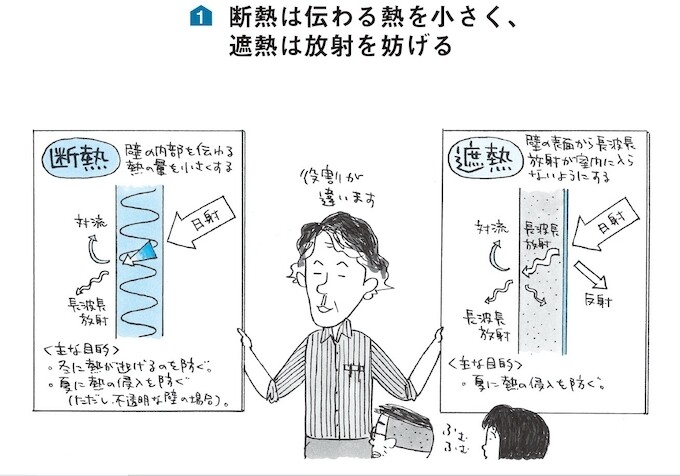 1 断熱は伝わる熱を小さく、
遮熱は放射を妨げる
断熱
壁の内部を伝わる
熱の量を小さくする
日射
対流
長波長
放射
<主な目的>
・冬に熱が逃げるのを防ぐ。
・夏に熱の侵入を防ぐ
(ただし、不透明な壁の場合)。
役割が
違います
遮熱
壁の表面から長波長
放射が室内に入ら
ないようにする
対流
長波長
放射
日射
長波長
放射
反射
<主な目的>
・夏に熱の侵入を防ぐ。
ふむ
ふむ